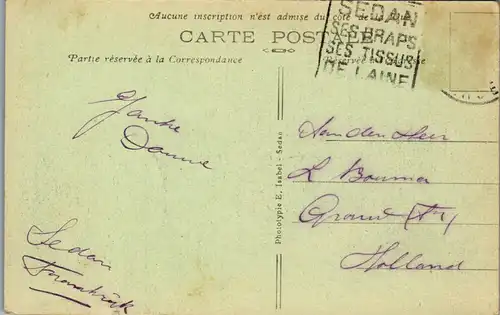 Aucune inscription n'est admise du côté de la
CARTE POSTALE
Partie réservée à la Correspondance
Réservée à
SEDAN
SES DRAPS
SES TISSUS
DE LAINE
Sedan
Frankrijk
Phototypie E. Isabel - Sedan
Aan den Heer
Bouma
Holland